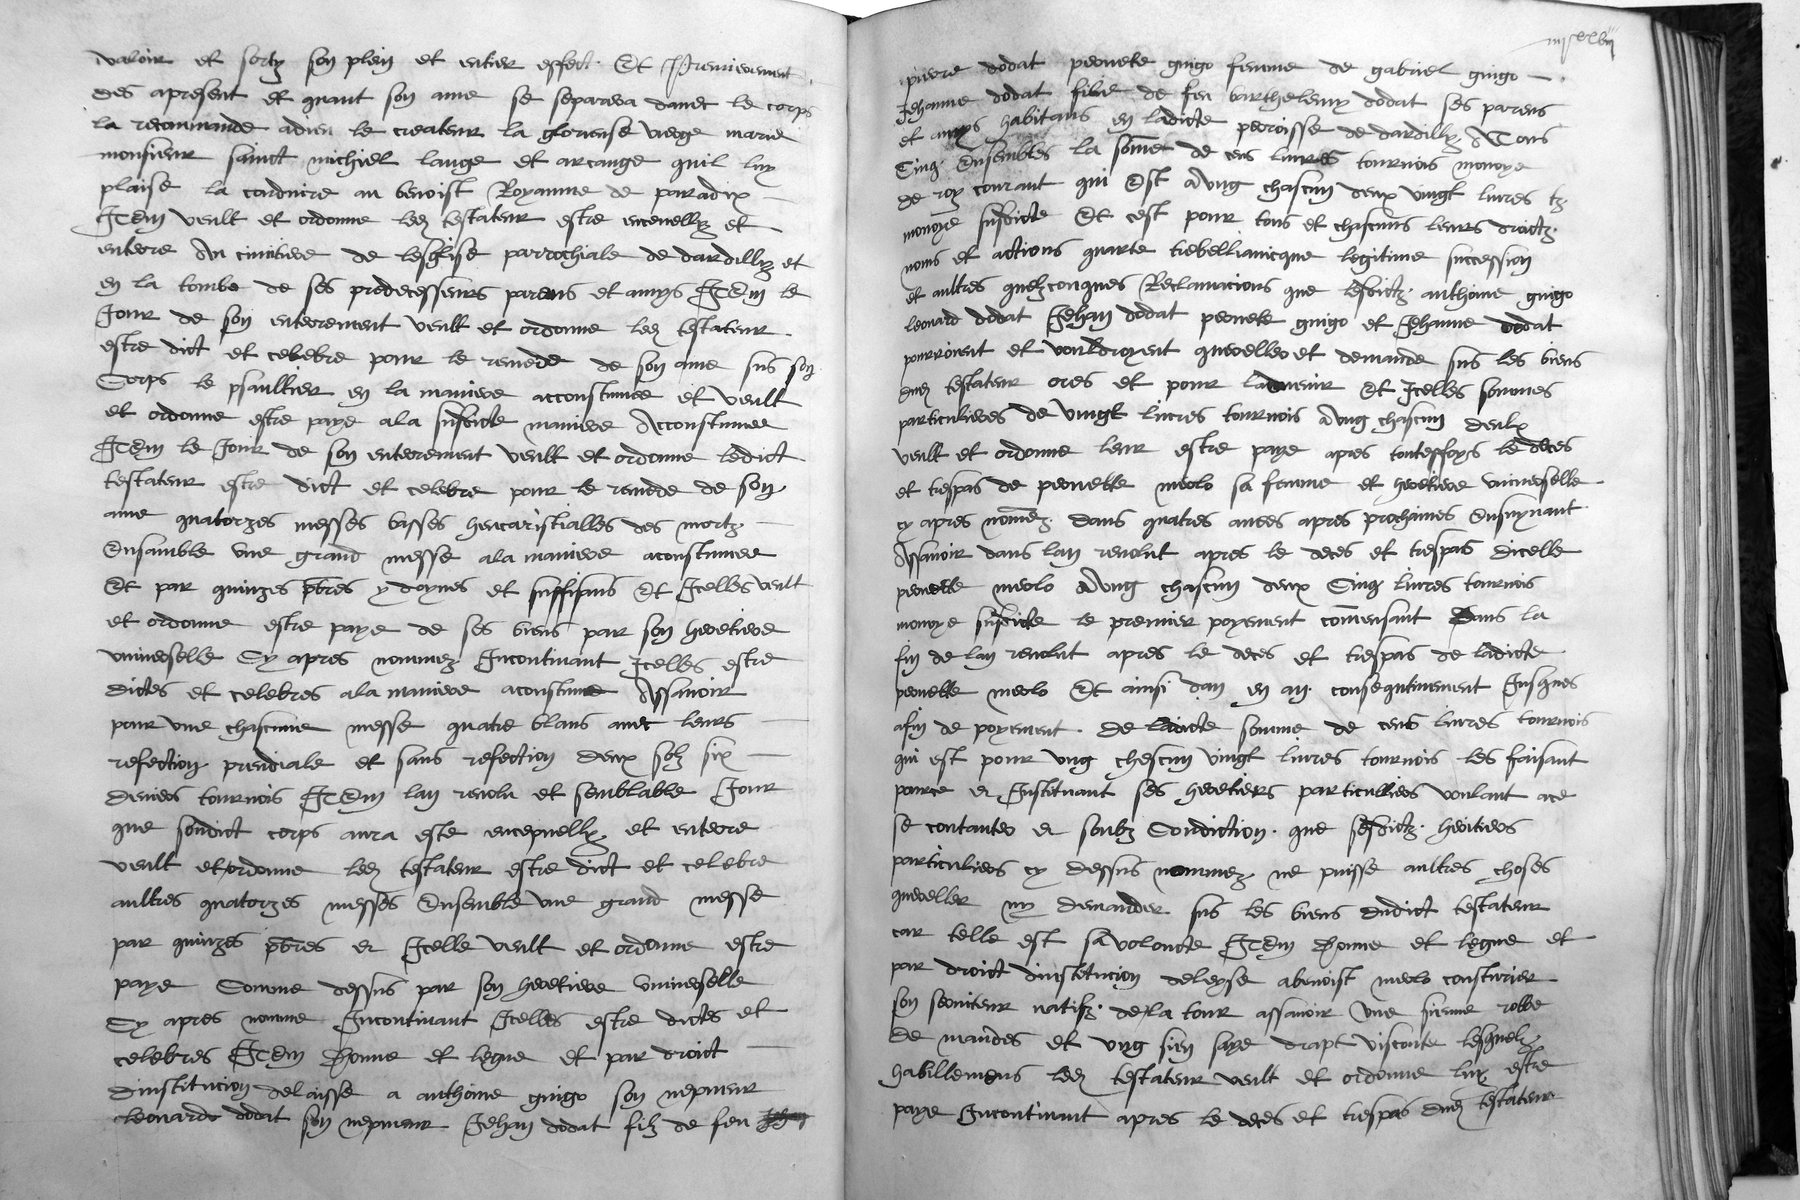 valoir et sortz son plein et entier effect. Et Premierement
des apresent et quant son ame se separera danec le corps
la recommande adieu le createur la glorieuse vierge marie
monsieur sainct michiel lange et arcange quil luy
plaise la conduire au benoist Royaume de paradix
ITEm veult et ordonne led testateur estre encevelly et
enterre Au cimitiere de lesglise parrochiale de dardilly et
en la tombe de ses predecesseurs parens et amys ITEm le
Jour de son enterrement veult et ordonne led testateur
estre dict et celebre pour le remede de son ame sus son
Corps le psaultier en la maniere accoustumee et veult
et ordonne estre paye ala susdicte maniere Accoustumee
ITEm le Jour de son enterrement veult et ordonne ledict
testateur estre dict et celebre pour le remede de son
ame quatorzes messes basses heucaristialles des mortz
Ensamble une grand messe ala maniere acoustumee
Et par quinzes pbres ydoynes et suffisans Et Icelles veult
et ordonne estre paye de ses biens par son heretiere
universelle Cy apres nommez Incontinant Icelles estre
dictes et celebres ala maniere acoustumee Assavoir
pour une chascune messe quatre blans avec leurs
refection prendiale et sans refection deux solz six
deniers tournois ITEm lan revolu et semblable Jour
que sondict corps aura este encepvelly et enterre
veult et ordonne led testateur estre dict et celebre
aultres quatorzes messes Ensemble une grand messe
par quinzes pbres et Icelle veult et ordonne estre
paye Comme dessus par son heretiere universelle
Cy apres nomme Incontinant Icelles estre dictes et
celebres ITEm Donne et legue et par droict
dinstitucion delaisse a anthoine guigo son nepveur
leonard dodat son nepveur Jehan dodat filz de feu
pierre dodat peronete guigo femme de gabriel guigo
Jehanne dodat fille de feu barthelemy dodat ses parens
et amys habitans en ladicte perroisse de dardilly A Tous
Cinq Ensembles la some de cens livres tournois monoye
de roy courant qui Est A ung chascun deux vingt livres tz
monoye susdicte Et cest pour tous et chascuns leurs droictz
noms et actions quarte trebellianicque legitime succession
et aultres quelzconques Reclamacions que lesdictz anthoine guigo
leonard dodat Jehan dodat peronete guigo et Jehanne dodat
pourroient et vouldroyent quereller et demande sus les biens
dud testateur ores et pour ladvenir Et Icelles sommes
particulieres de vingt livres tournois A ung chascun deulx
veult et ordonne leur estre paye apres touteffoys le deces
et trespas de peronette merlo sa femme et heretiere universelle
cy apres nomez dans quatres annees apres prochaines Ensuyvant
Assavoir dans lan revolut apres le deces et trespas dicelle
peronette merlo A ung chascun deux Cinq livres tournois
monoye susdicte le premier poyement comensant Dans la
fin de lan revolut apres le deces et trespas de ladicte
peronette merlo Et ainsi dan en an consequtivement Jusques
afin de poyement. De ladicte somme de cens livres tournois
qui est pour ung chescun vingt livres tournois les faisant
pource et Instituant ses heretiers particulliers voulant ace
se contanter et soubz Condiction que sesdictz heritiers
particuliers cy dessus nommez ne puisse aultres choses
quereller ny demander sus les biens dudict testateur
car telle est sa volonte ITEm Donne et legue et
par droict dinstitucion deleysse abenoist merlo cousturier
son serviteur natifz de la tour assavoir une sienne robbe
de mandes et ung sien saye drapt viscomte lesquelz
habillemens led testateur veult et ordonne luy estre
paye Incontinant apres le deces et trespas dud testateur